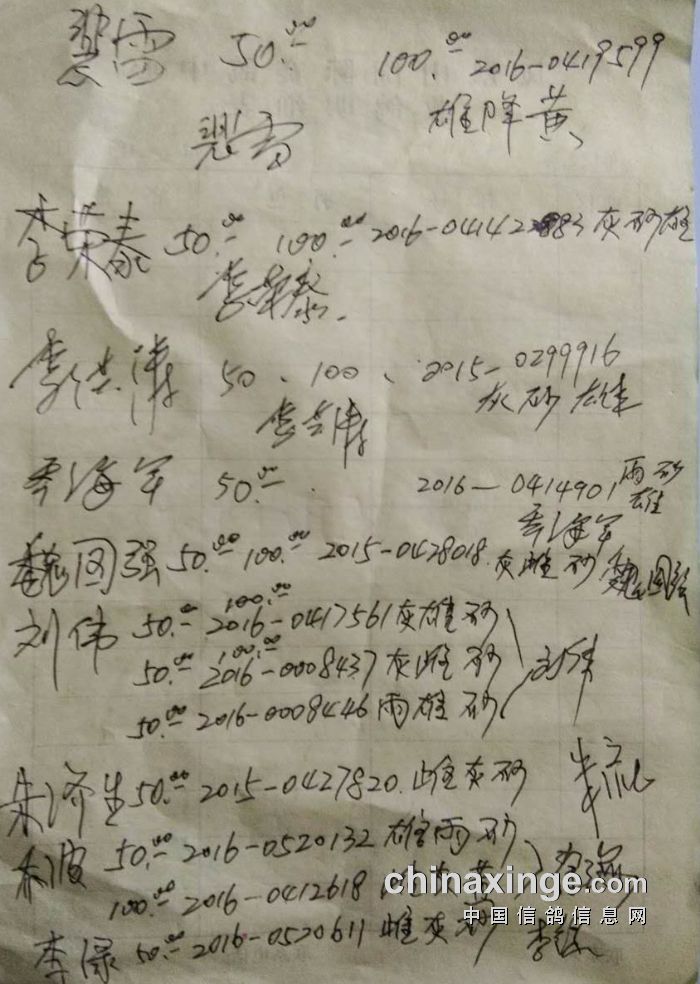 雷 50.00 100.00 2016-0419599
雄降黄
雷
李荣泰 50.00 100.00 2016-04142 灰砂雄
李荣泰
李 涛 50. 100. 2015-0299916
灰砂雄
李 涛
海军 50.00 2016-0414901 雨砂
雄
海军
魏国强 50.00 100.00 2015-0428018. 灰雌砂 魏国强
100.00
刘伟 50.00 2016-0417561 灰雄砂
100.00
50.00 2016-0008437 灰雌砂 刘伟
50.00 2016-0008446 雨雄砂
朱济生 50.00 2015-0427820. 雌灰砂
波 50.00 2016-0520132 雄雨砂
100.00 2016-0412618 黄
chinaxinge.com
中国信鸽信息网
李禄 50.00 2016-0520611 雌灰砂 李禄